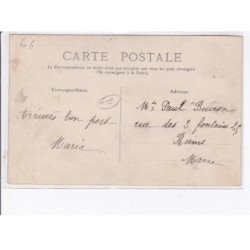 CARTE POSTALE
La Correspondance au recto n'est pas acceptée par tous les pays étrangers
(Se renseigner à la Poste)
Correspondance
Adresse
51
Mr Paul
rue des 3 fontaines
Reims
Marne
Arrivés bon port
Maria